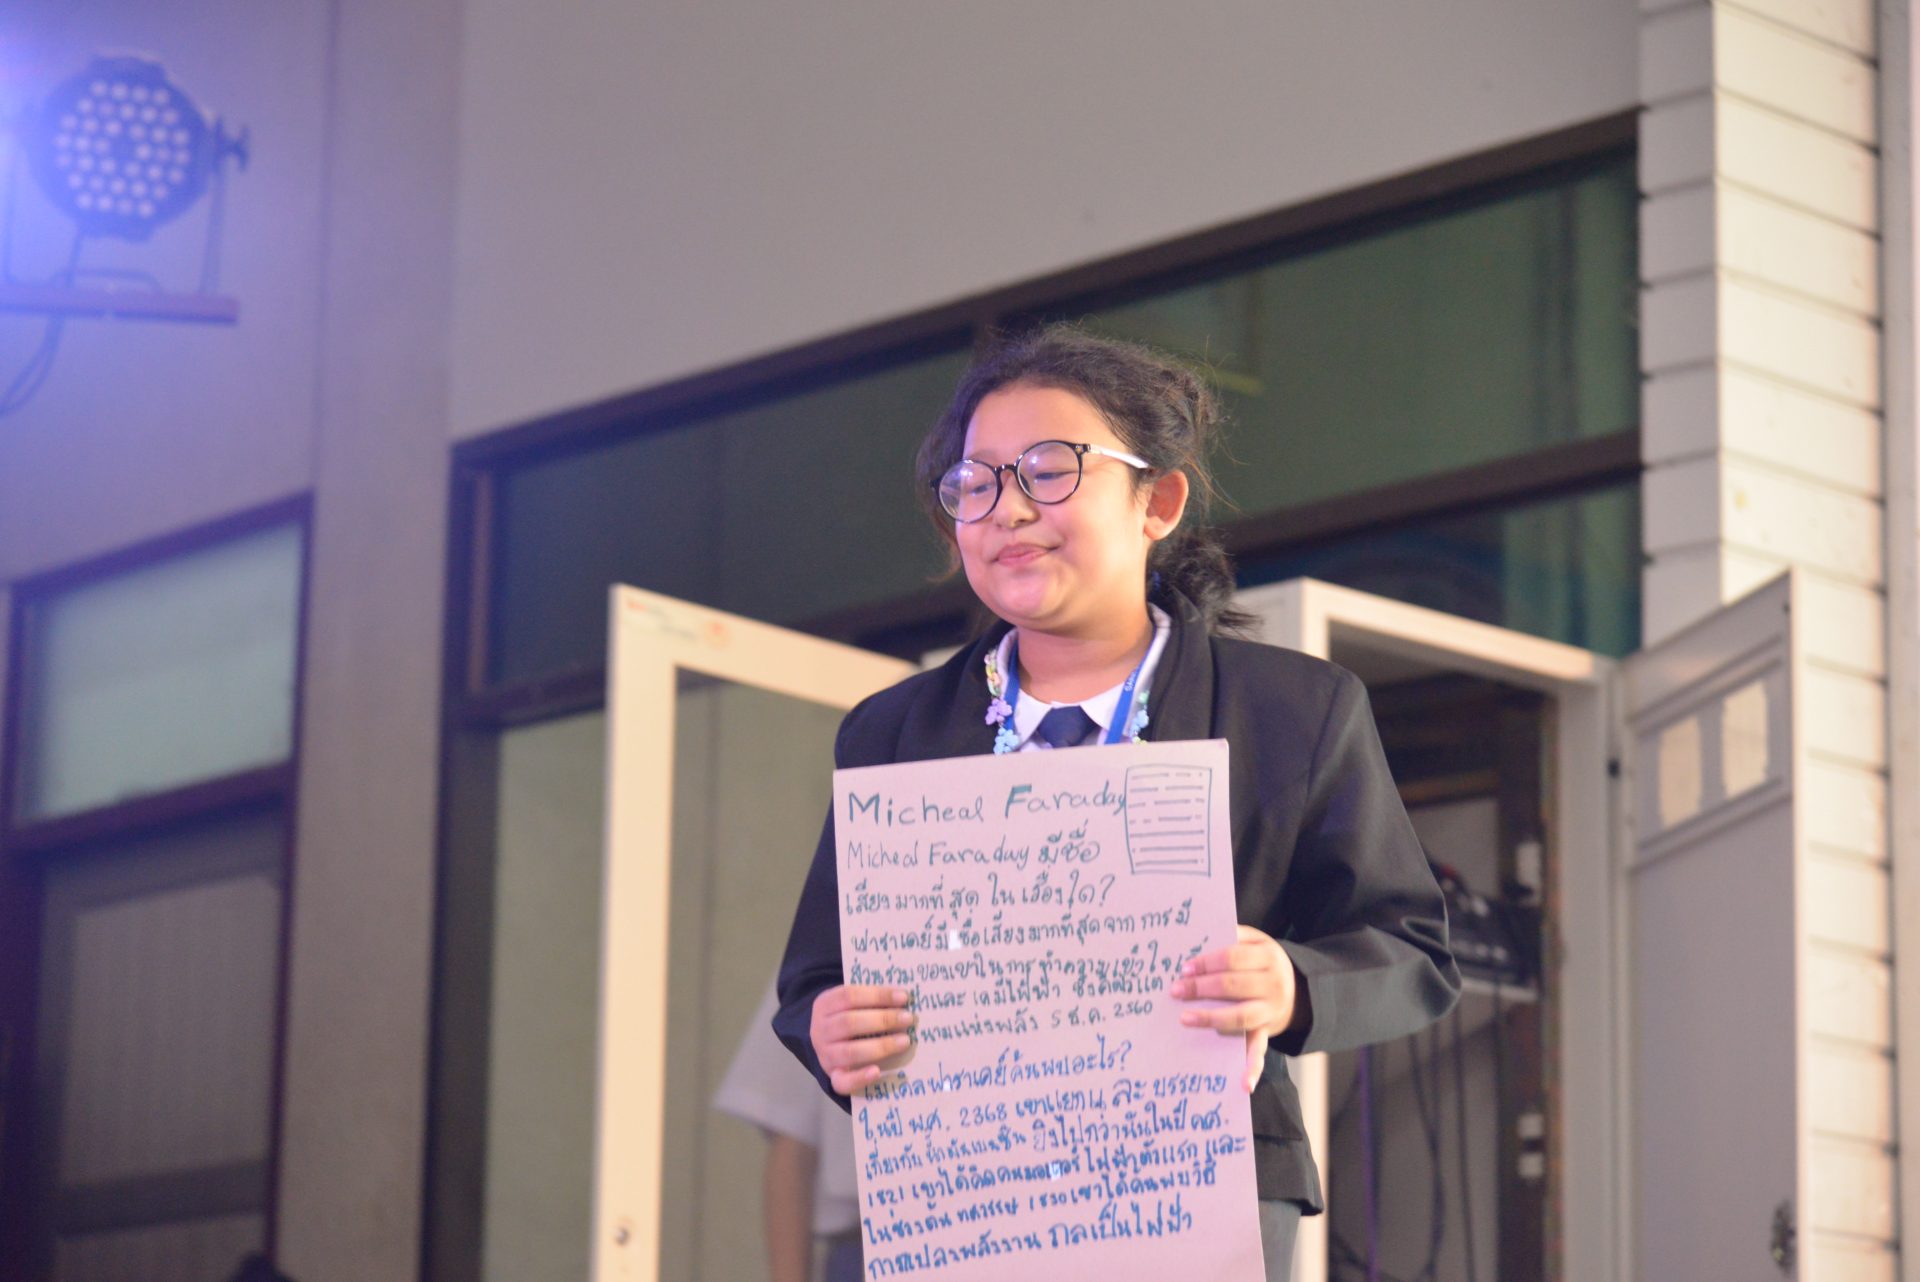 Micheal Faraday
Micheal Faraday มีชื่อ
เสียงมากที่สุด ในเรื่องใด?
ฟาราเดย์มีชื่อเสียงมากที่สุดจาก การมี
ส่วนร่วมของเขาในการทำความเข้าใจ
และ เคมีไฟฟ้า ซึ่งคิดว้แต่
สนามแห่งพลัง 5 ธ.ค. 2560
ไมเคิลฟาราเดย์ค้นพบอะไร?
ในปี พ.ศ. 2368 เขาแยกแ ละ บรรยาย
เกี่ยวกับ ยิ่งไปกว่านั้นในปี คศ.
1821 เขาได้คิดค้นมอเตอร์ไฟฟ้าตัวแรก และ
ในช่วงต้น ทศวรรษ 1830 เขาได้ค้นพบวิธี
การแปลงพลังงาน กลเป็นไฟฟ้า